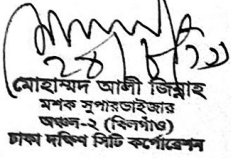 ২৪/৮/২১
মোহাম্মদ আলী জিন্নাহ
মশক সুপারভাইজার
অঞ্চল-২ (খিলগাঁও)
ঢাকা দক্ষিণ সিটি কর্পোরেশন